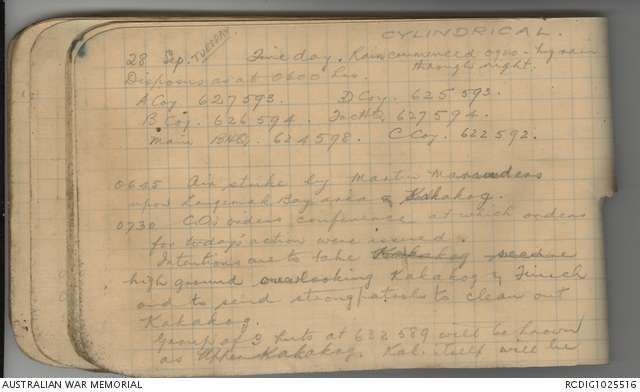 CYLINDRICAL.
28 Sep. TUESDAY. Fine day. Rain commenced 0900 - hy rain
through night.
Disposns as at 0600 hrs.
A Coy 627593. D Coy. 625593.
B Coy. 626594. Tac HQ 627594.
Main BHQ. 624598. C Coy. 622592.
0645 Air strike by Martin Marauders
upon Langemak Bay area & Kakakog.
0730 CO's orders conference at which orders
for today's action were issued.
Intentions are to take Kakakog secure
high ground overlooking Kakakog & Finsch
and to send strong patrols to clean out
Kakakog.
Group of 3 huts at 632589 will be known
as Upper Kakakog. Kak. itself will be
AUSTRALIAN WAR MEMORIAL
RCDIG1025516